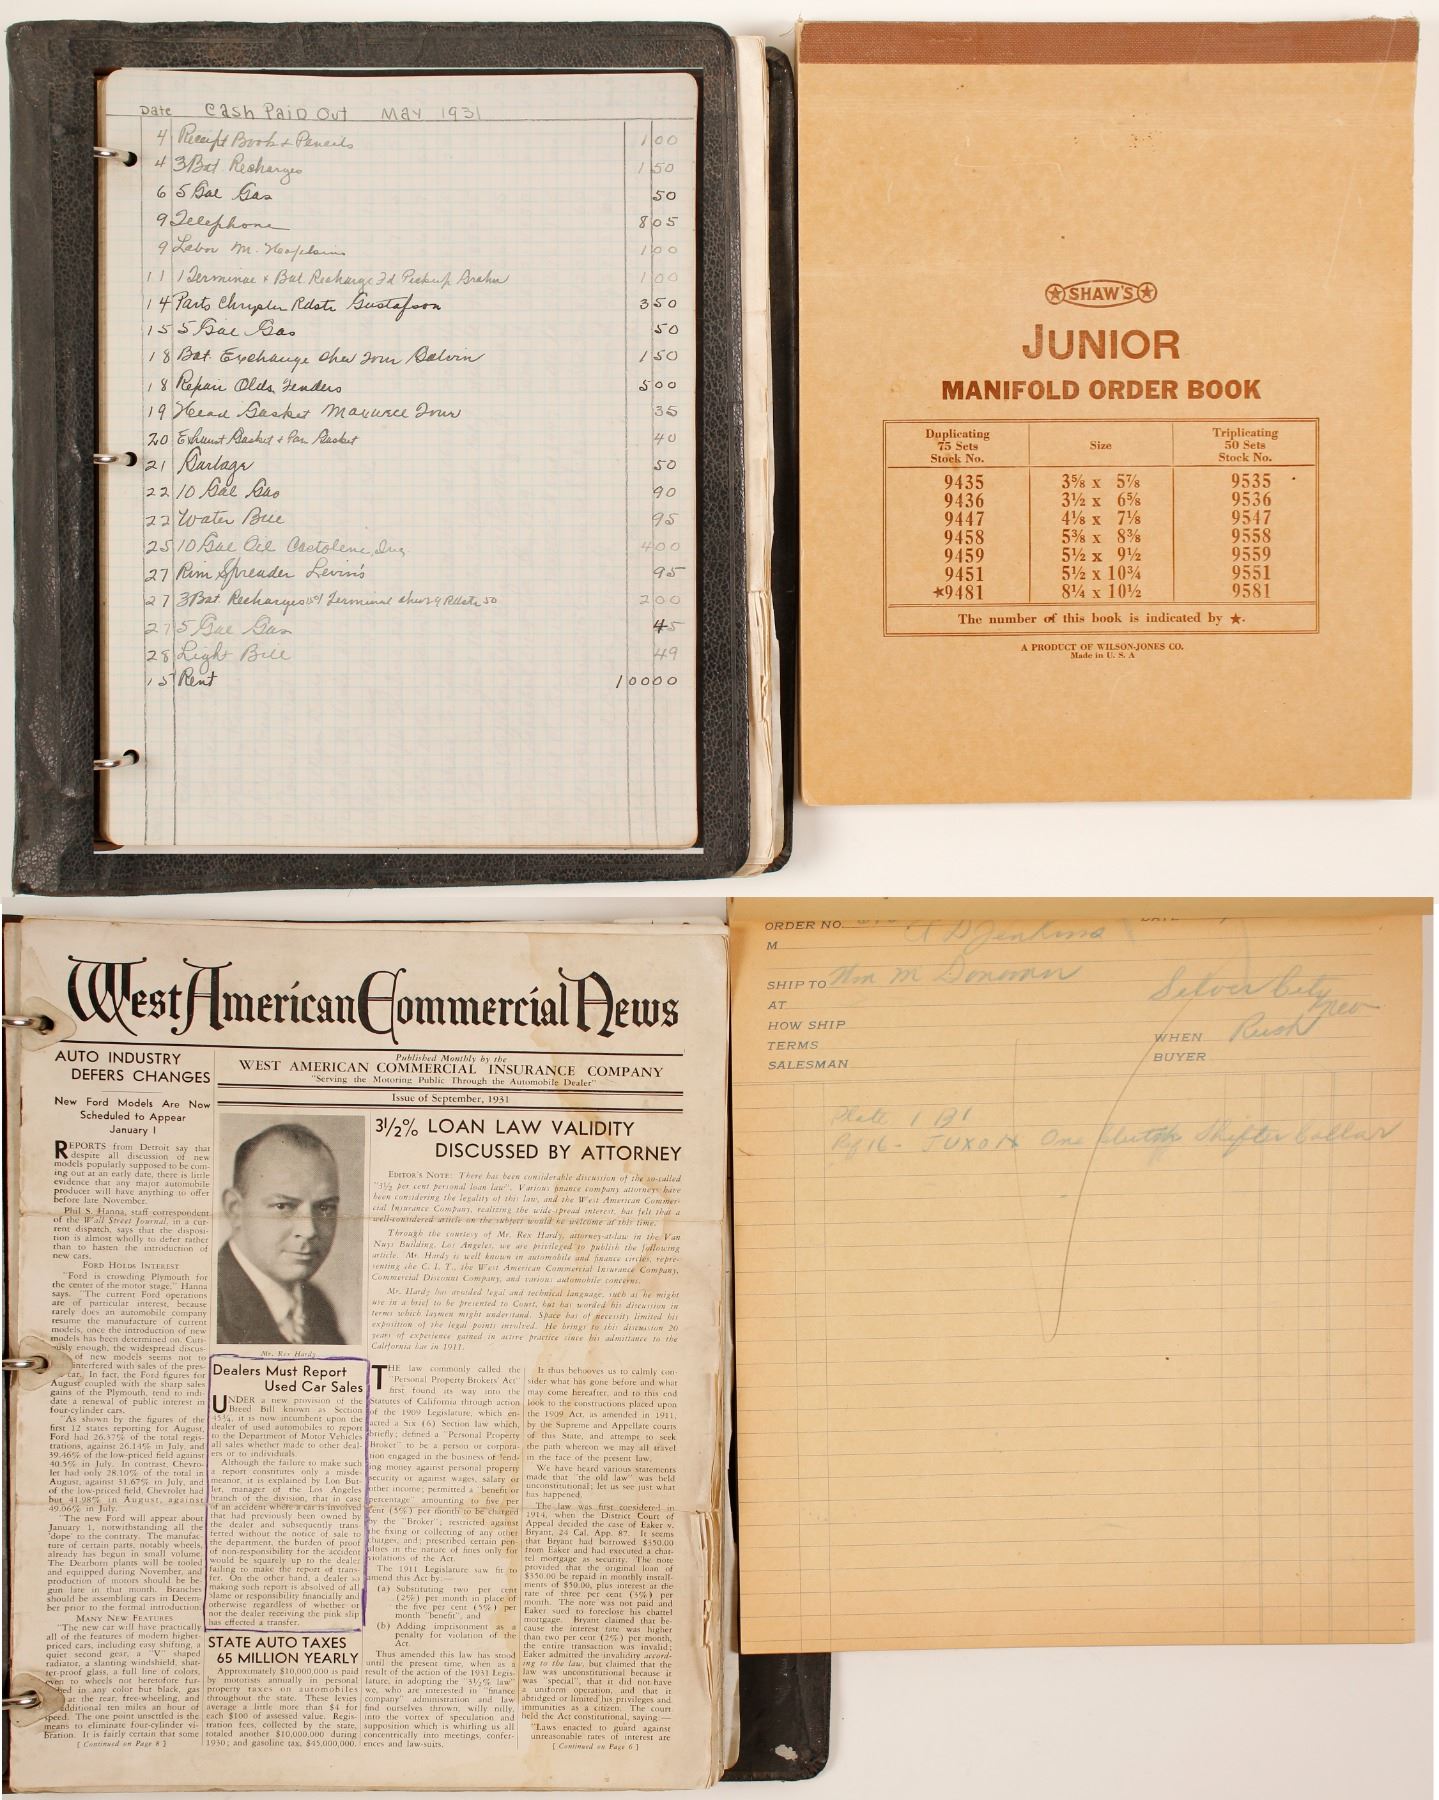 Date Cash Paid Out May 1931
4 Receipt Book & Pencils 1 00
4 3 Bat Recharges 1 50
6 5 Gal Gas 50
9 Telephone 8 05
9 Labor M. 1 00
11 1 Terminal & Bat Recharge Pickup 1 00
14 Parts Chrysler Rdstr Gustafson 3 50
15 5 Gal Gas 50
18 Bat. Exchange Chev Tour 1 50
18 Repair Olds. Fenders 5 00
19 Head Gasket Maxwell Tour 35
20 Exhaust Gasket & Pan Gasket 40
21 Garbage 50
22 10 Gal Gas 90
22 Water Bill 95
25 10 Gal Oil 4 00
27 Rim Spreader Levin's 95
27 3 Bat. Recharges Terminal Chev 29 Rdstr 50 2 00
27 5 Gal Gas 45
28 Light Bill 49
15 Rent 100 00
SHAW'S
JUNIOR
MANIFOLD ORDER BOOK
Duplicating 75 Sets Stock No. Size Triplicating 50 Sets Stock No.
9435 3⅝ x 5⅞ 9535
9436 3½ x 6⅝ 9536
9447 4⅛ x 7⅛ 9547
9458 5⅜ x 8⅜ 9558
9459 5½ x 9½ 9559
9451 5½ x 10¾ 9551
★9481 8¼ x 10½ 9581
The number of this book is indicated by ★.
A PRODUCT OF WILSON-JONES CO.
Made in U. S. A
West American Commercial News
Published Monthly by the
WEST AMERICAN COMMERCIAL INSURANCE COMPANY
"Serving the Motoring Public Through the Automobile Dealer"
Issue of September, 1931
AUTO INDUSTRY
DEFERS CHANGES
New Ford Models Are Now
Scheduled to Appear
January 1
REPORTS from Detroit say that
despite all discussion of new
models popularly supposed to be com-
ing out at an early date, there is little
evidence that any major automobile
producer will have anything to offer
before late November.
Phil S. Hanna, staff correspondent
of the Wall Street Journal, in a cur-
rent dispatch, says that the disposi-
tion is almost wholly to defer rather
than to hasten the introduction of
new cars.
FORD HOLDS INTEREST
"Ford is crowding Plymouth for
the center of the motor stage," Hanna
says. "The current Ford operations
are of particular interest, because
rarely does an automobile company
resume the manufacture of current
models, once the introduction of new
models has been determined on. Curi-
ously enough, the widespread discus-
of new models seems not to
interfered with sales of the pres-
car. In fact, the Ford figures for
August coupled with the sharp sales
gains of the Plymouth, tend to indi-
date a renewal of public interest in
four-cylinder cars.
"As shown by the figures of the
first 12 states reporting for August,
Ford had 26.37% of the total regis-
trations, against 26.14% in July, and
39.46% of the low-priced field against
40.5% in July. In contrast, Chevro-
let had only 28.10% of the total in
August, against 31.67% in July, and
of the low-priced field, Chevrolet had
but 41.98% in August, against
49.06% in July.
"The new Ford will appear about
January 1, notwithstanding all the
'dope' to the contrary. The manufac-
ture of certain parts, notably wheels,
already has begun in small volume.
The Dearborn plants will be tooled
and equipped during November, and
production of motors should be be-
gun late in that month. Branches
should be assembling cars in Decem-
ber prior to the formal introduction.
MANY NEW FEATURES
"The new car will have practically
all of the features of modern higher-
priced cars, including easy shifting, a
quiet second gear, a "V" shaped
radiator, a slanting windshield, shat-
ter-proof glass, a full line of colors,
even to wheels not heretofore fur-
in any color but black, gas
at the rear, free-wheeling, and
additional ten miles an hour of
speed. The one point unsettled is the
means to eliminate four-cylinder vi-
bration. It is fairly certain that some
[ Continued on Page 8 ]
Mr. Rex Hardy
Dealers Must Report
Used Car Sales
UNDER a new provision of the
Breed Bill known as Section
45¾, it is now incumbent upon the
dealer of used automobiles to report
to the Department of Motor Vehicles
all sales whether made to other deal-
ers or to individuals.
Although the failure to make such
a report constitutes only a misde-
meanor, it is explained by Lon But-
ler, manager of the Los Angeles
branch of the division, that in case
of an accident where a car is involved
that had previously been owned by
the dealer and subsequently trans-
ferred without the notice of sale to
the department, the burden of proof
of non-responsibility for the accident
would be squarely up to the dealer
failing to make the report of trans-
fer. On the other hand, a dealer
making such report is absolved of all
blame or responsibility financially and
otherwise regardless of whether or
not the dealer receiving the pink slip
has effected a transfer.
STATE AUTO TAXES
65 MILLION YEARLY
Approximately $10,000,000 is paid
by motorists annually in personal
property taxes on automobiles
throughout the state. These levies
average a little more than $4 for
each $100 of assessed value. Regis-
tration fees, collected by the state,
totaled another $10,000,000 during
1930; and gasoline tax, $45,000,000.
3½% LOAN LAW VALIDITY
DISCUSSED BY ATTORNEY
EDITOR'S NOTE: There has been considerable discussion of the so-called
"3½ per cent personal loan law". Various finance company attorneys have
been considering the legality of this law, and the West American Commer-
cial Insurance Company, realizing the wide-spread interest, has felt that a
well-considered article on the subject would be welcome at this time.
Through the courtesy of Mr. Rex Hardy, attorney-at-law in the Van
Nuys Building, Los Angeles, we are privileged to publish the following
article. Mr. Hardy is well known in automobile and finance circles, repre-
senting the C. I. T., the West American Commercial Insurance Company,
Commercial Discount Company, and various automobile concerns.
Mr. Hardy has avoided legal and technical language, such as he might
use in a brief to be presented to Court, but has worded his discussion in
terms which laymen might understand. Space has of necessity limited his
exposition of the legal points involved. He brings to this discussion 20
years of experience gained in active practice since his admittance to the
California bar in 1911.
THE law commonly called the
"Personal Property Brokers' Act"
first found its way into the
Statutes of California through action
of the 1909 Legislature, which en-
acted a Six (6) Section law which,
briefly; defined a "Personal Property
Broker" to be a person or corpora-
tion engaged in the business of lend-
ing money against personal property
security or against wages, salary or
other income; permitted a "benefit or
percentage" amounting to five per
cent (5%) per month to be charged
by the "Broker"; restricted against
the fixing or collecting of any other
charges, and; prescribed certain pen-
alties in the nature of fines only for
violations of the Act.
The 1911 Legislature saw fit to
amend this Act by:—
(a) Substituting two per cent
(2%) per month in place of
the five per cent (5%) per
month "benefit", and
(b) Adding imprisonment as a
penalty for violation of the
Act.
Thus amended this law has stood
until the present time, when as a
result of the action of the 1931 Legis-
lature, in adopting the "3½% law"
we, who are interested in "finance
company" administration and law
find ourselves thrown, willy nilly,
into the vortex of speculation and
supposition which is whirling us all
concentrically into meetings, confer-
ences and law-suits.
It thus behooves us to calmly con-
sider what has gone before and what
may come hereafter, and to this end
look to the constructions placed upon
the 1909 Act, as amended in 1911,
by the Supreme and Appellate courts
of this State, and attempt to seek
the path whereon we may all travel
in the face of the present law.
We have heard various statements
made that "the old law" was held
unconstitutional; let us see just what
has happened.
The law was first considered in
1914, when the District Court of
Appeal decided the case of Eaker v.
Bryant, 24 Cal. App. 87. It seems
that Bryant had borrowed $350.00
from Eaker and had executed a chat-
tel mortgage as security. The note
provided that the original loan of
$350.00 be repaid in monthly install-
ments of $50.00, plus interest at the
rate of three per cent (3%) per
month. The note was not paid and
Eaker sued to foreclose his chattel
mortgage. Bryant claimed that be-
cause the interest rate was higher
than two per cent (2%) per month,
the entire transaction was invalid;
Eaker admitted the invalidity accord-
ing to the law, but claimed that the
law was unconstitutional because it
was "special", that it did not have
a uniform operation, and that it
abridged or limited his privileges and
immunities as a citizen. The court
held the Act constitutional, saying:—
"Laws enacted to guard against
unreasonable rates of interest are
[ Continued on Page 6 ]
ORDER NO. DATE
M Jenkins
SHIP TO Wm M Donovan
AT Silver City Nev
HOW SHIP
TERMS WHEN Rush
SALESMAN BUYER
Plate 1 B1
Ref 16 - JUXON One Clutch Shifter Collar